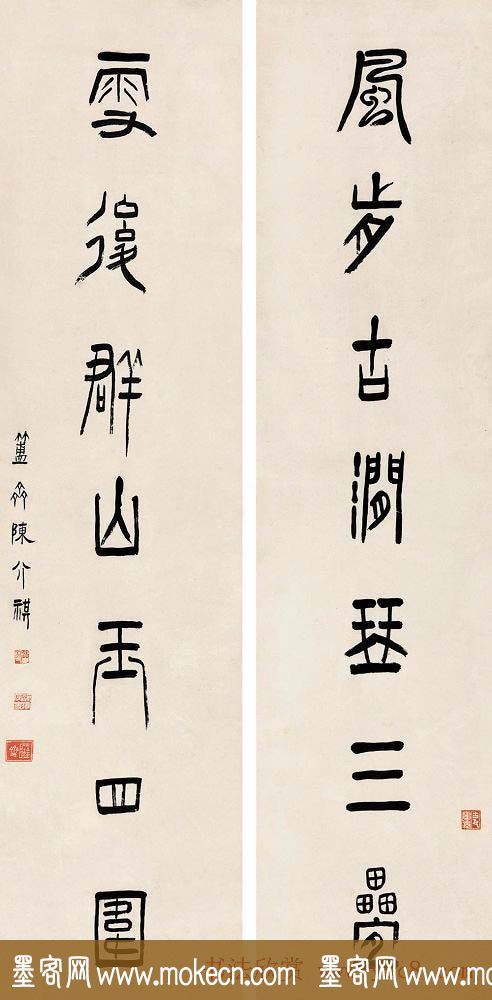 風步古澗琴三疊
雪後群山玉四圍
簠齋陳介祺
墨客网 www.mokecn.com 墨客网 www.mokecn.com
书法欣赏